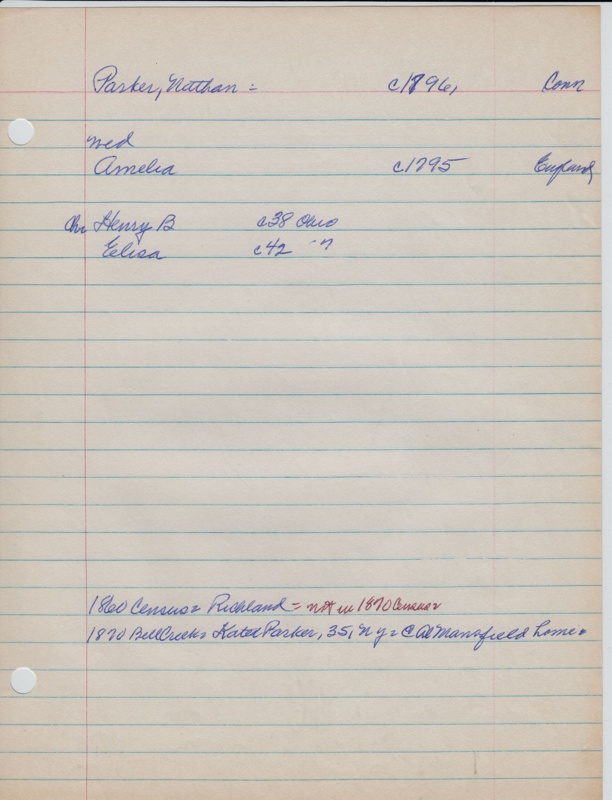 Parker, Nathan = c1796, Conn
med
Amelia c1795 England
Chr Henry B c38 Ohio
Elisa c42 "
1860 Census = Richland = not in 1870 Census =
1870 Bell Creek = Kate Parker, 35, N Y = C A Mansfield home =